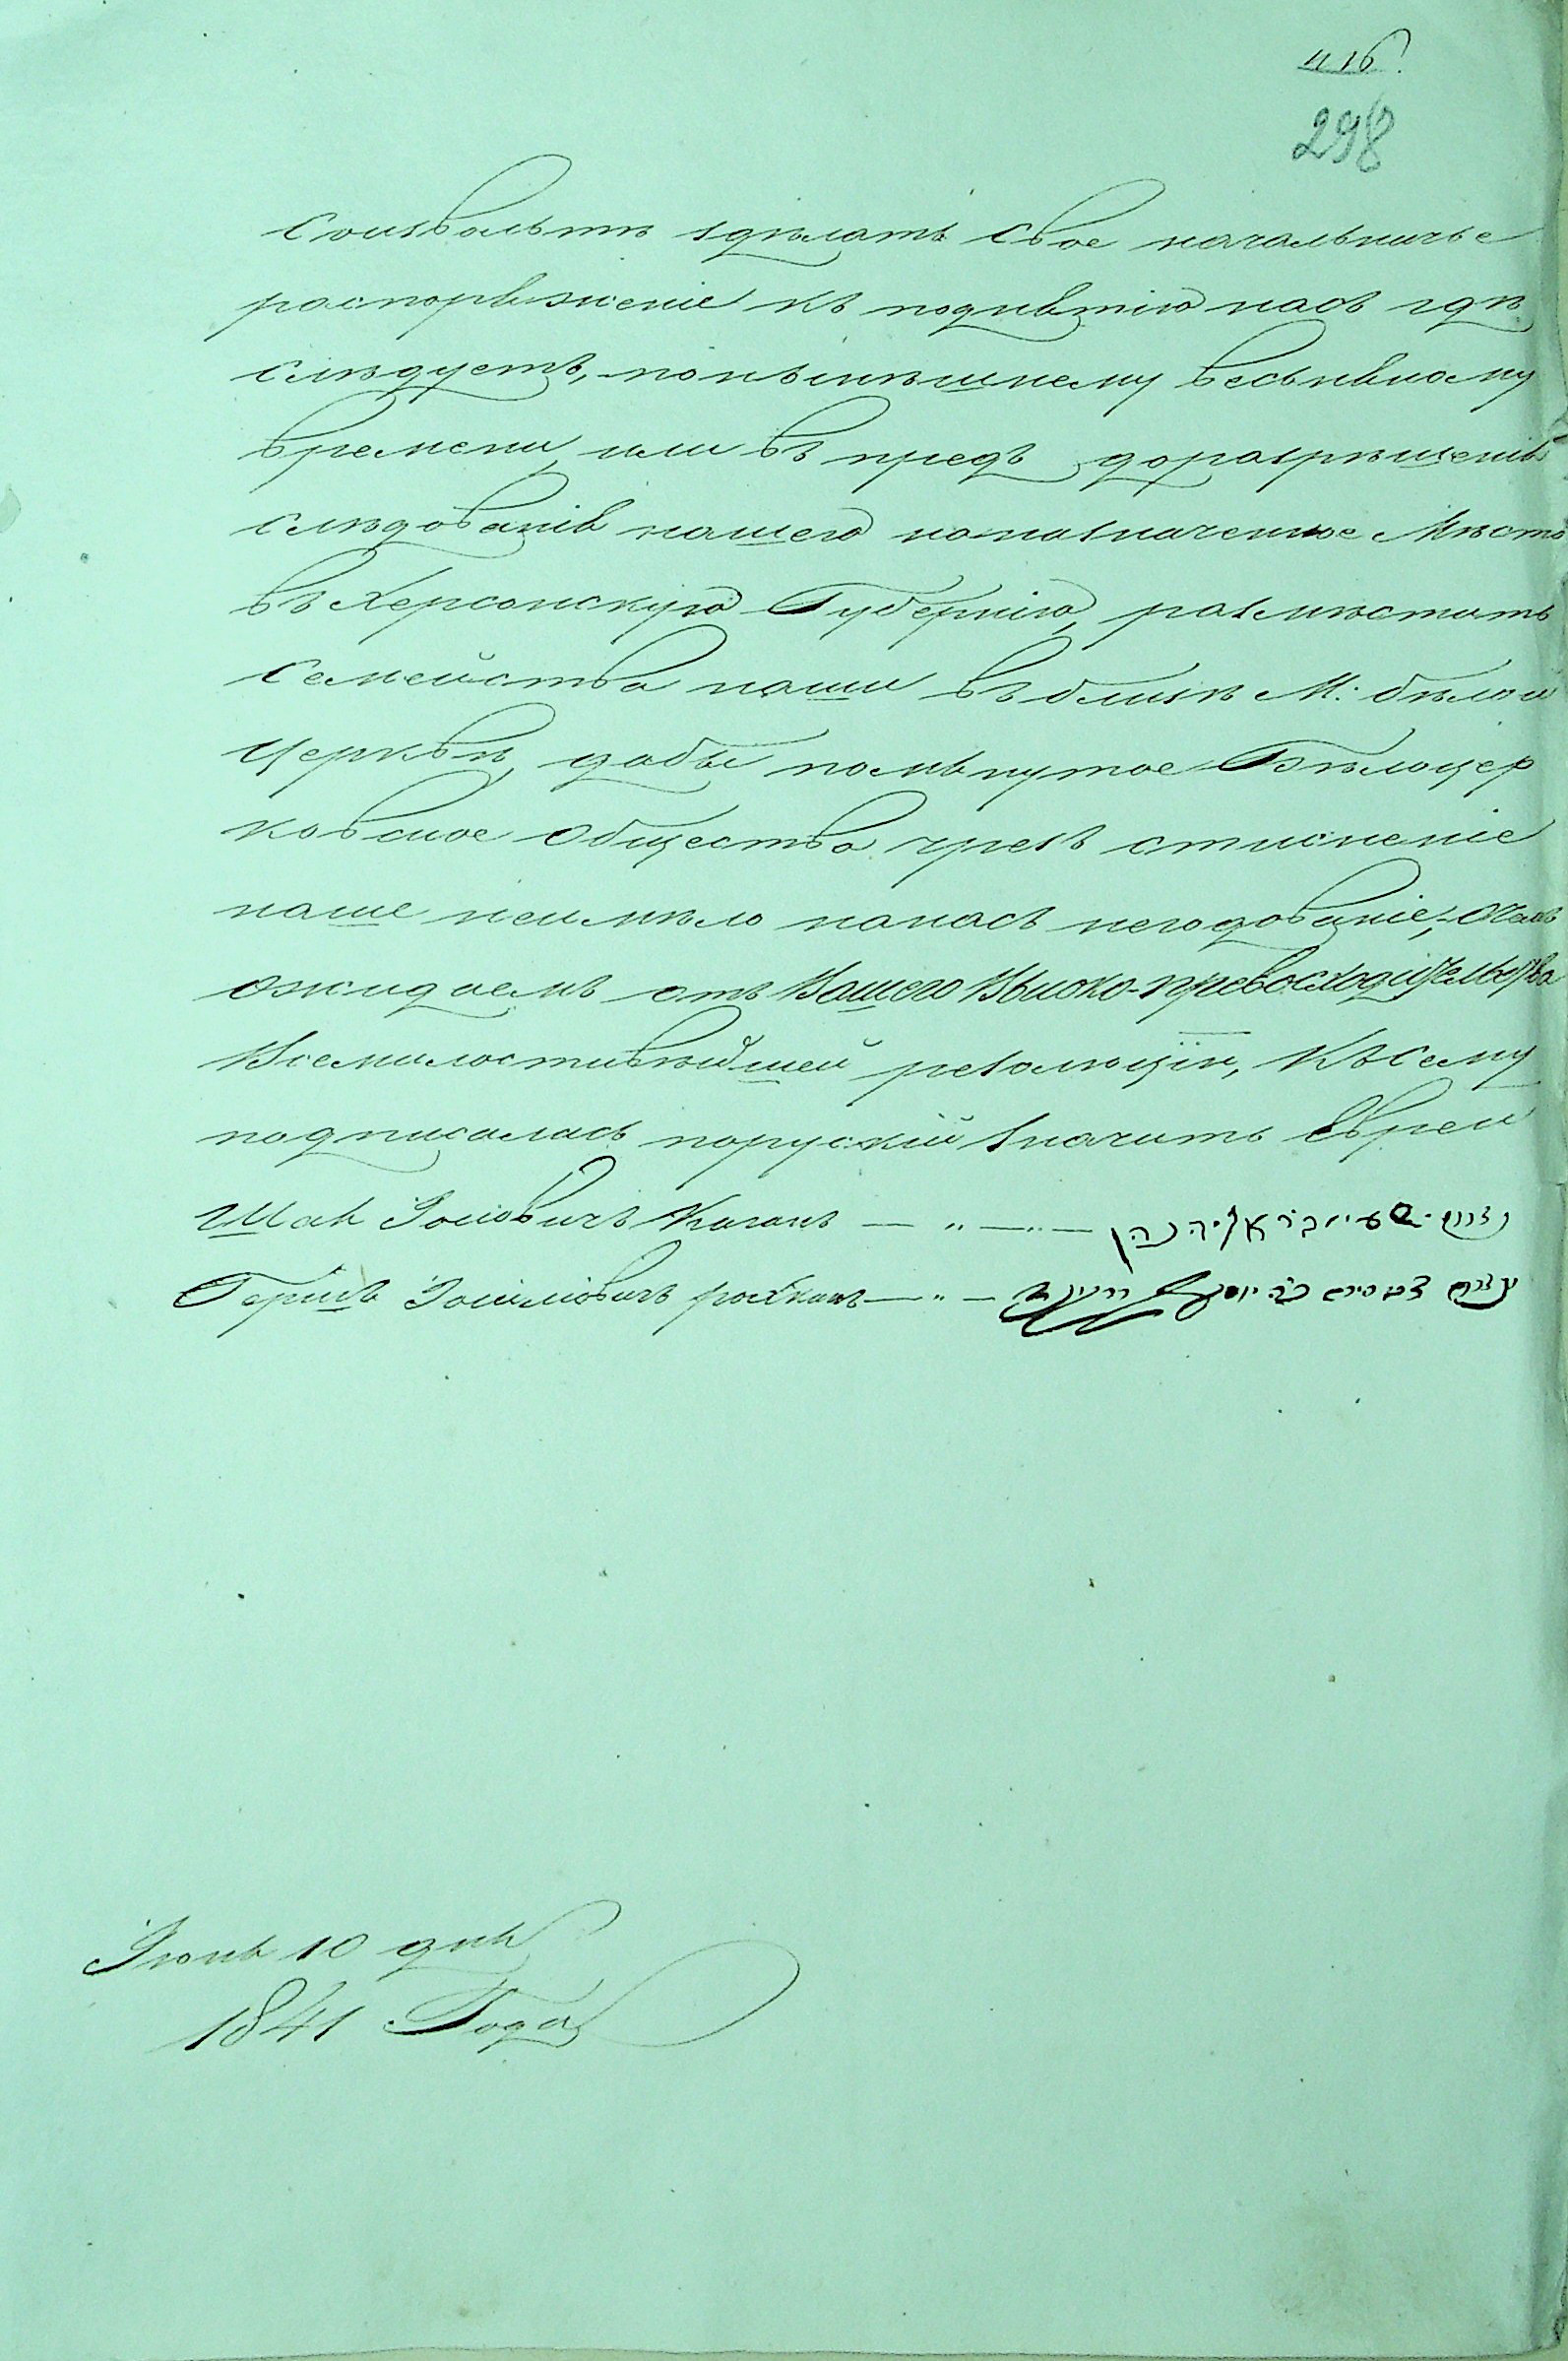 416.
298
соизвольте здѣлать свое начальничье
распоряженіе къ поднятію насъ гдѣ
слѣдуетъ, понынѣшнему весьняному
времени, или въ предъ доразрѣшенія
слѣдованія нашего наназначенное Мѣсто
въ Херсонскую Губернію, размѣстить
семейства наши въ близѣ М: бѣлой
Церквѣ, дабы помянутое Бѣлоцер
ковское Общество чрезъ стисненіе
наше неимѣло нанасъ негодованіе, – о чемъ
ожидаемъ отъ Вашего Высоко-превосходительства
Всемилостивѣйшей резолюціи, Къ сему
подписались поруский значить Евреи
Іосіовичъ Каганъ — „ — „ —
Гершъ —„—
Іюня 10 дня
1841 Года